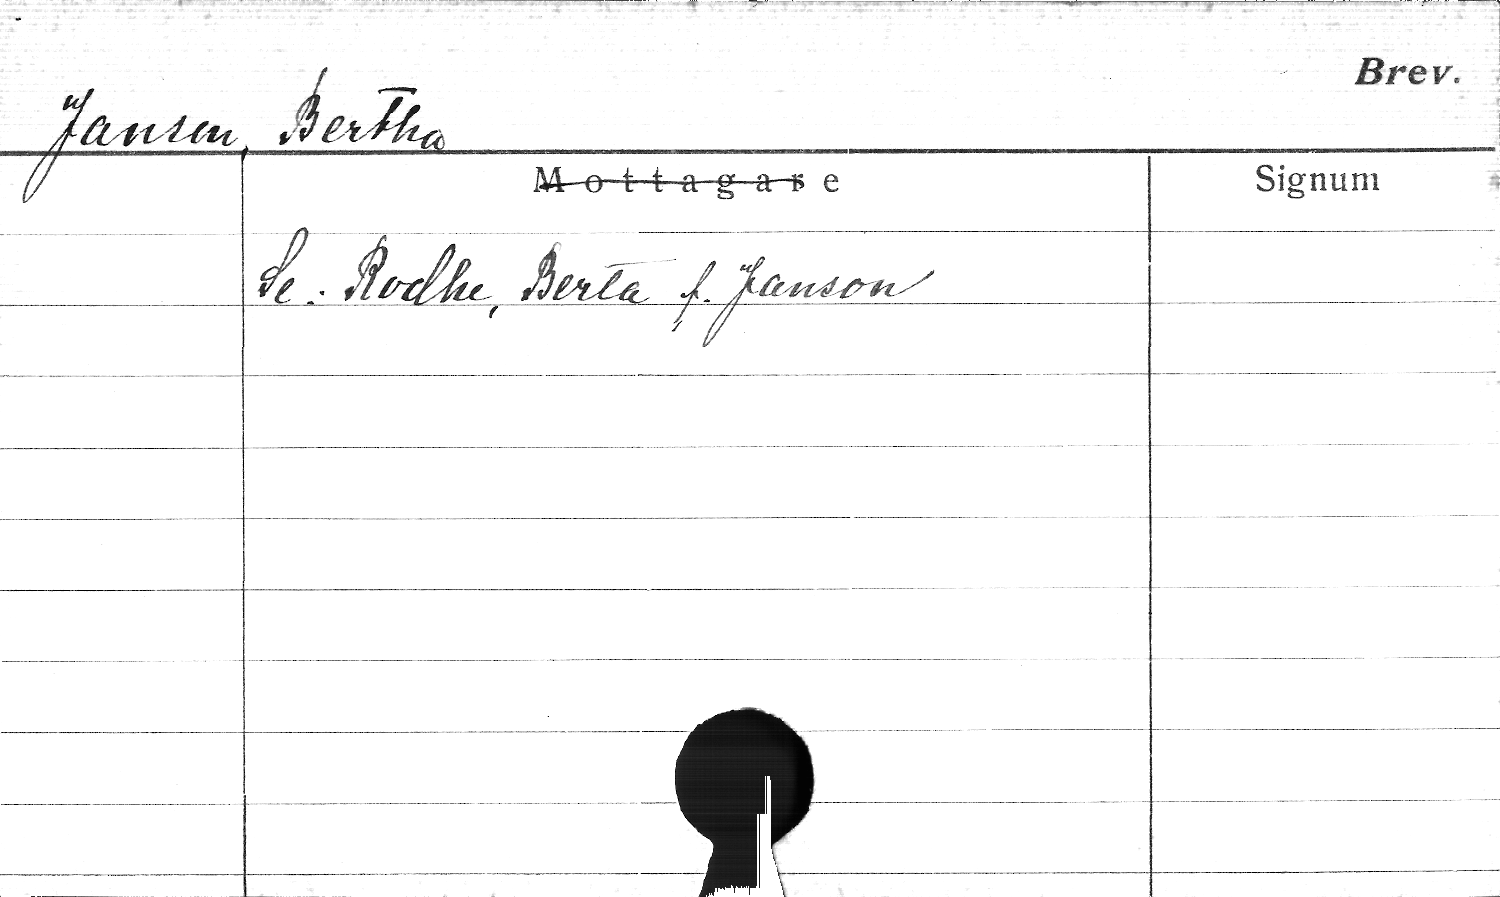 Brev.
Janson, Bertha
Mottagare
Signum
Se: Rodhe, Berta f. Janson